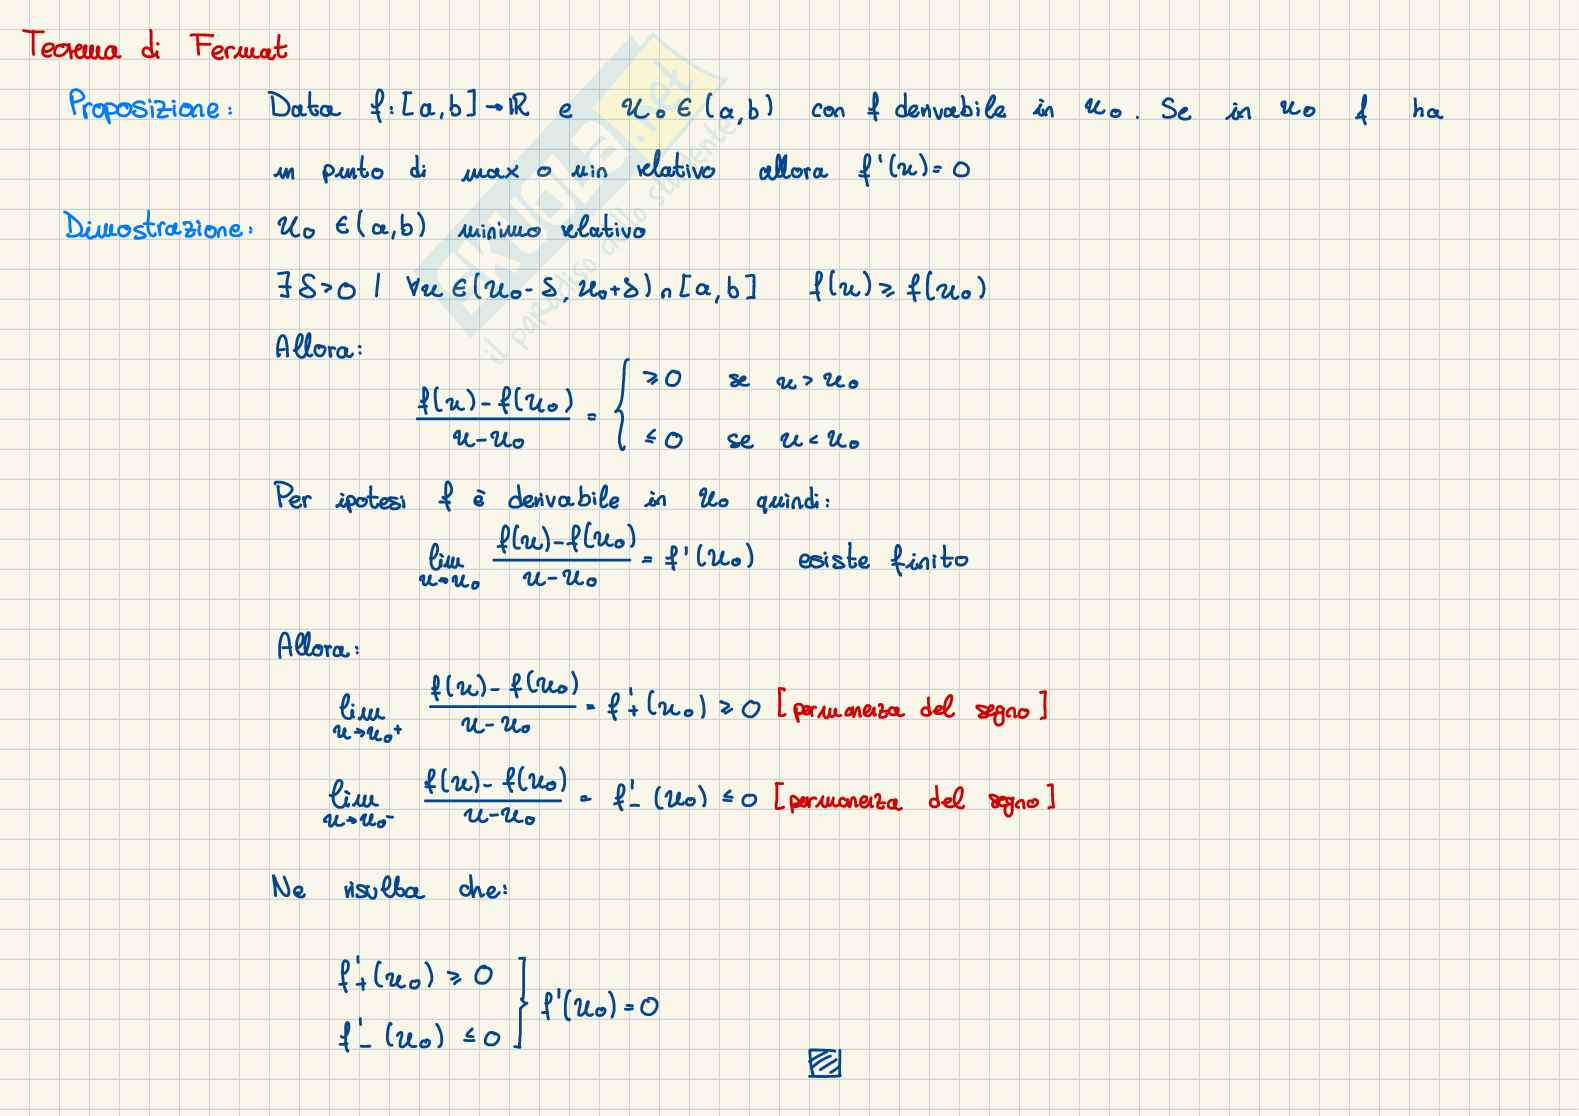 Teorema di Fermat
Proposizione: Data f: [a,b]→ℝ e x₀ ∈ (a,b) con f derivabile in x₀. Se in x₀ f ha
un punto di max o min relativo allora f'(x)=0
Dimostrazione: x₀ ∈ (a,b) minimo relativo
∃ δ>0 | ∀x ∈ (x₀-δ, x₀+δ) ∩ [a,b] f(x) ≥ f(x₀)
Allora:
(f(x)-f(x₀))/(x-x₀) = { ≥0 se x > x₀
≤0 se x < x₀
Per ipotesi f è derivabile in x₀ quindi:
lim x→x₀ (f(x)-f(x₀))/(x-x₀) = f'(x₀) esiste finito
Allora:
lim x→x₀⁺ (f(x)-f(x₀))/(x-x₀) = f'₊(x₀) ≥ 0 [permanenza del segno]
lim x→x₀⁻ (f(x)-f(x₀))/(x-x₀) = f'₋(x₀) ≤ 0 [permanenza del segno]
Ne risulta che:
f'₊(x₀) ≥ 0
f'₋(x₀) ≤ 0 } f'(x₀)=0
SKUOLA.net
il paradiso dello studente